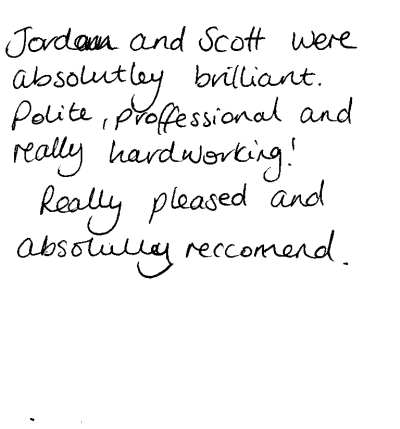 Jordan and Scott were
absolutley brilliant.
Polite, proffessional and
really hardworking!
Really pleased and
absolutley reccomend.